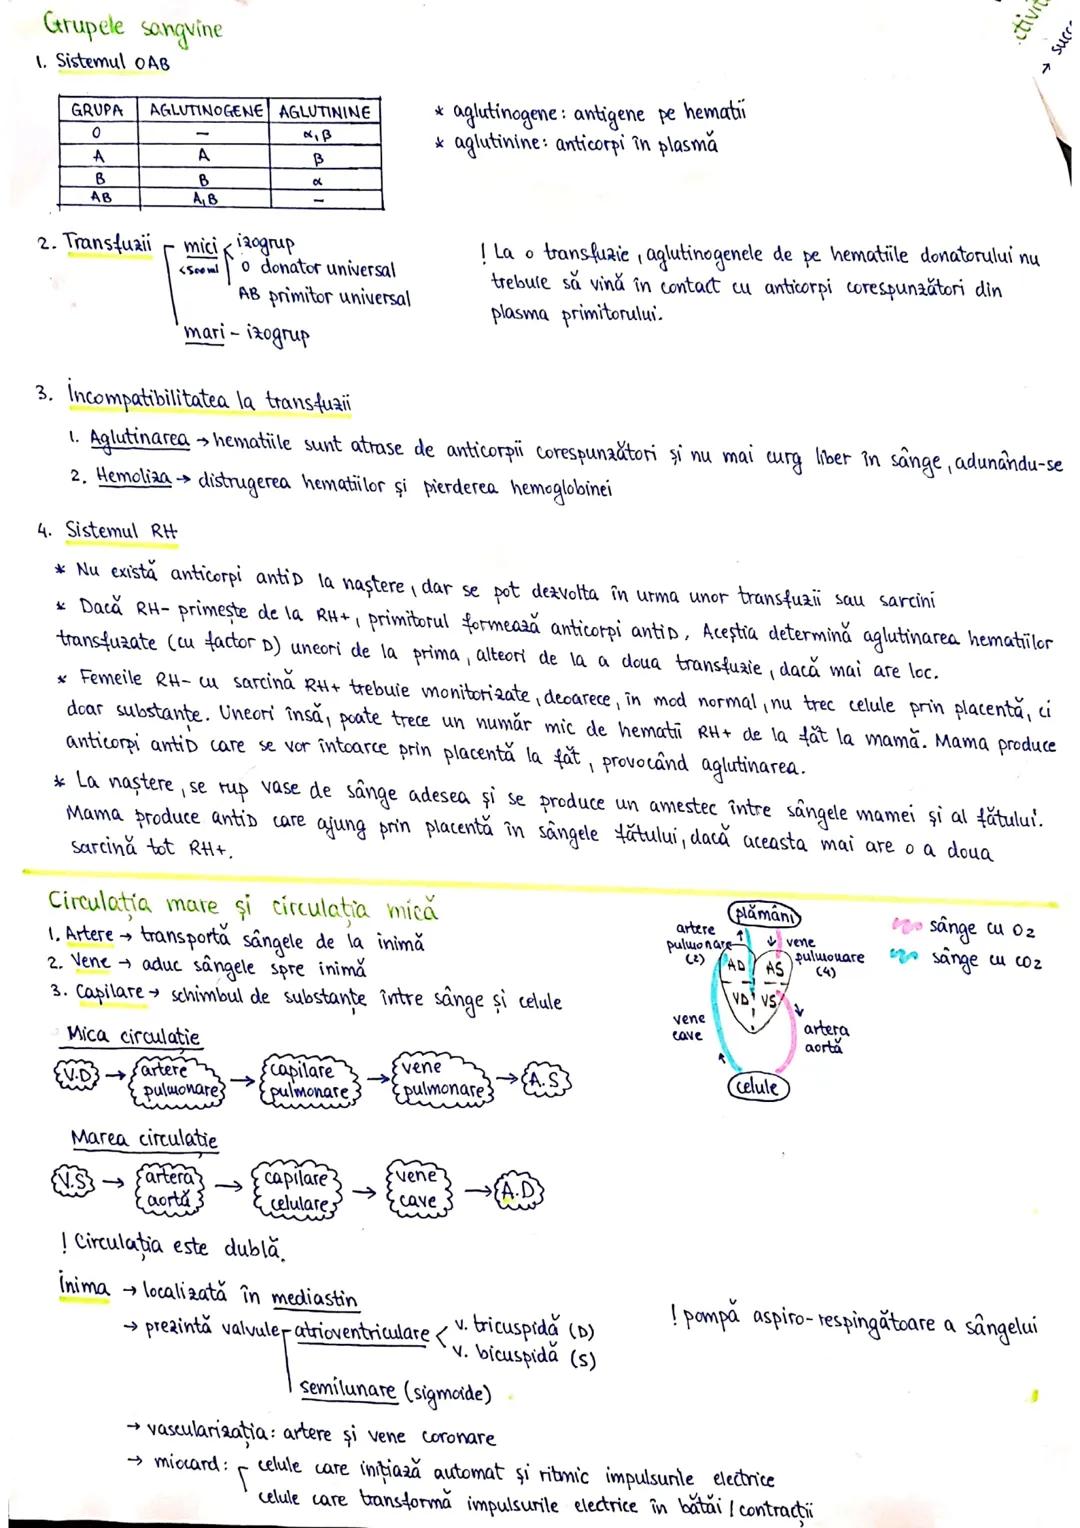 Grupele sangvine
1. Sistemul OAB
GRUPA AGLUTINOGENE AGLUTININE
O – α,β
A A β
B B α
AB A,B –
* aglutinogene: antigene pe hematii
* aglutinine: anticorpi în plasmă
2. Transfuzii mici <500ml izogrup
O donator universal
AB primitor universal
mari - izogrup
! La o transfuzie, aglutinogenele de pe hematiile donatorului nu
trebuie să vină în contact cu anticorpi corespunzători din
plasma primitorului.
3. Incompatibilitatea la transfuzii
1. Aglutinarea → hematiile sunt atrase de anticorpii corespunzători și nu mai curg liber în sânge, adunându-se
2. Hemoliza → distrugerea hematiilor și pierderea hemoglobinei
4. Sistemul RH
* Nu există anticorpi antiD la naștere, dar se pot dezvolta în urma unor transfuzii sau sarcini
* Dacă RH- primește de la RH+, primitorul formează anticorpi antiD. Aceștia determină aglutinarea hematiilor
transfuzate (cu factor D) uneori de la prima, alteori de la a doua transfuzie, dacă mai are loc.
* Femeile RH- cu sarcină RH+ trebuie monitorizate, deoarece, în mod normal, nu trec celule prin placentă, ci
doar substanțe. Uneori însă, poate trece un număr mic de hematii RH+ de la făt la mamă. Mama produce
anticorpi antiD care se vor întoarce prin placentă la făt, provocând aglutinarea.
* La naștere, se rup vase de sânge adesea și se produce un amestec între sângele mamei și al fătului.
Mama produce antiD care ajung prin placentă în sângele fătului, dacă aceasta mai are o a doua
sarcină tot RH+.
Circulația mare și circulația mică
1. Artere → transportă sângele de la inimă
2. Vene → aduc sângele spre inimă
3. Capilare → schimbul de substanțe între sânge și celule
Mica circulație
V.D → artere pulmonare → capilare pulmonare → vene pulmonare → A.S
Marea circulație
V.S → artera aortă → capilare celulare → vene cave → A.D
! Circulația este dublă.
plămâni
artere
pulmonare
(2)
vene
pulmonare
(4)
AD AS
VD VS
vene
cave
artera
aortă
celule
sânge cu O2
sânge cu CO2
Inima → localizată în mediastin
→ prezintă valvule atrioventriculare < v. tricuspidă (D)
v. bicuspidă (S)
semilunare (sigmoide)
! pompă aspiro-respingătoare a sângelui
→ vascularizația: artere și vene coronare
→ miocard: celule care inițiază automat și ritmic impulsurile electrice
celule care transformă impulsurile electrice în bătăi / contracții